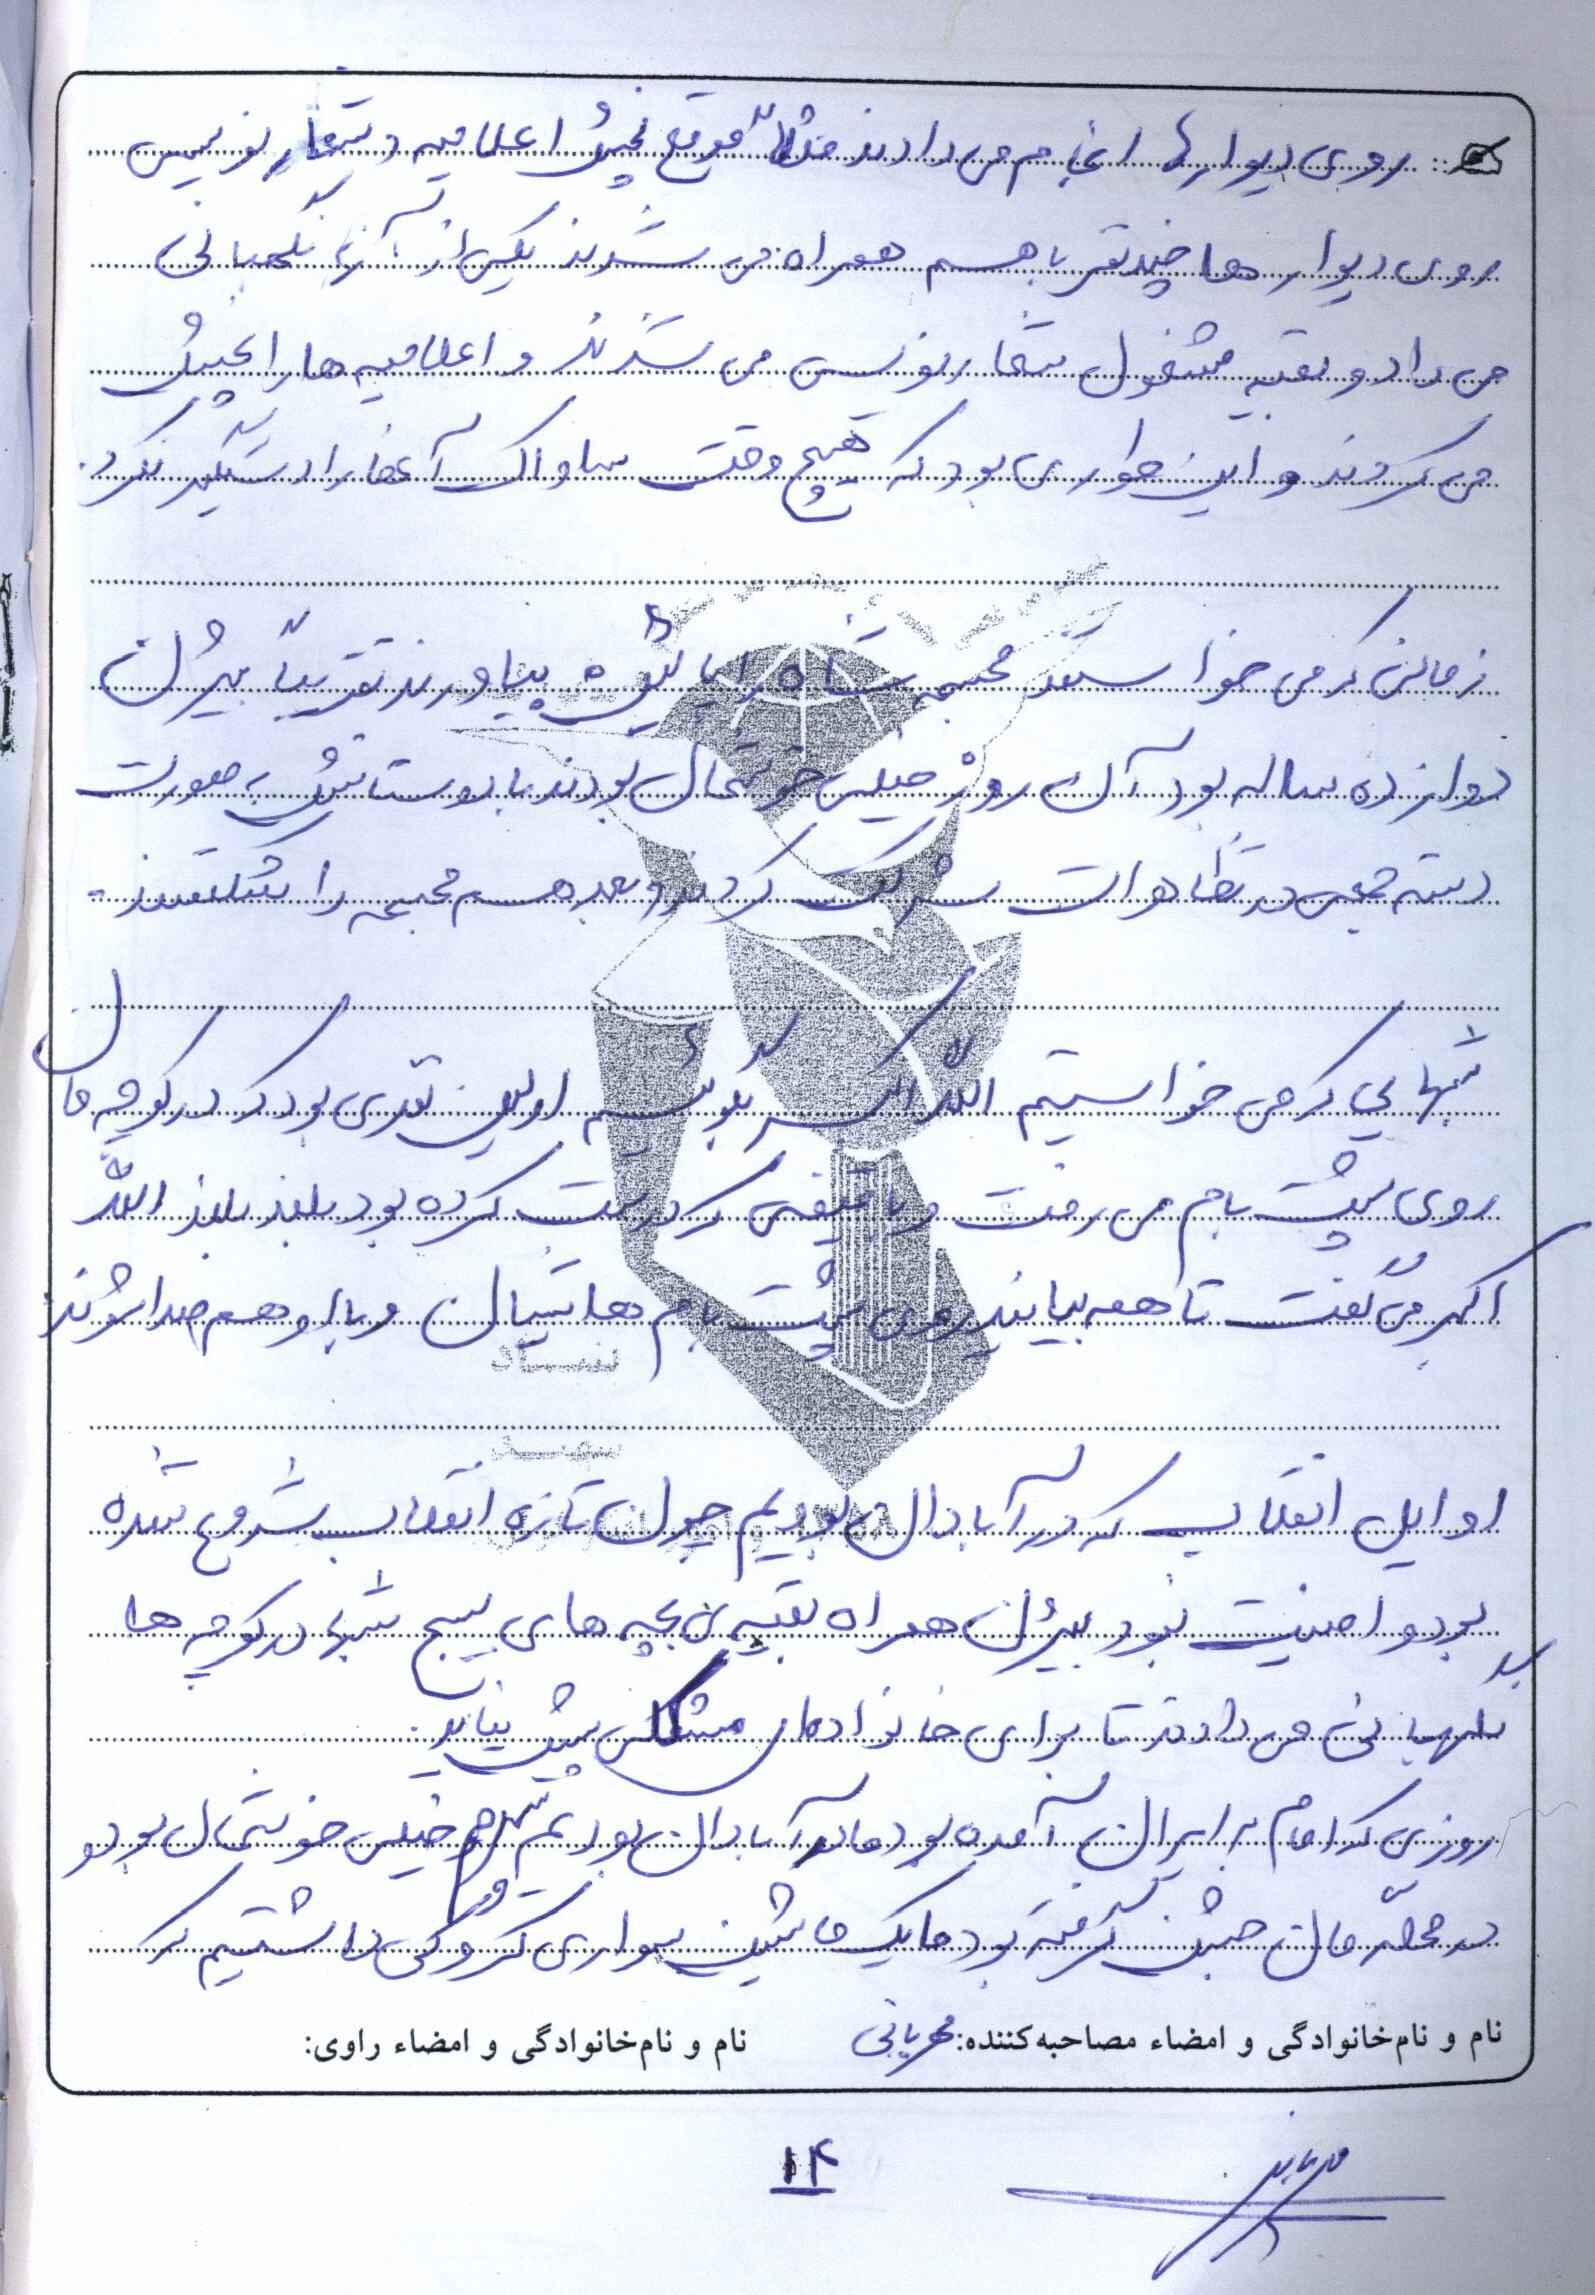 روی دیوارها انجام می دادند مثلاً موقع پخش اعلامیه و شعار نویسی
روی دیوار ها چند نفر با هم همراه می شدند یکی از آنها نگهبانی
می داد و بقیه مشغول شعار نویسی می شدند و اعلامیه ها را پخش
می کردند و این طوری بود که هیچ وقت ساواک آنها را دستگیر نکرد.
زمانی که می خواستند مجسمه شاه را پایین بیاورند تقریباً بیژن
دوازده ساله بود آن روز خیلی خوشحال بودند با دوستانش به صورت
دسته جمعی در تظاهرات شرکت کردند و بعد هم مجسمه را شکستند.
شبهایی که می خواستیم الله اکبر بگوئیم اولین نفری بود که در کوچه مان
روی پشت بام می رفت و با قیفی که درست کرده بود بلند بلند الله
اکبر می گفت تا همه بیایند روی پشت بام هایشان و با او هم صدا شوند
اوایل انقلاب که در آبادان بودیم چون تازه انقلاب شروع شده
بود و امنیت نبود بیژن همراه بقیه ی بچه های بسیج شبها در کوچه ها
نگهبانی می دادند تا برای خانواده ای مشکلی پیش نیاید.
روزی که امام به ایران آمده بود ما در آبادان بودیم مردم خیلی خوشحال بود و
در محله مان جشن گرفته بود ما یک ماشین سواری کروکی داشتیم که
نام و نام خانوادگی و امضاء مصاحبه کننده: مهربانی
نام و نام خانوادگی و امضاء راوی:
۱۴